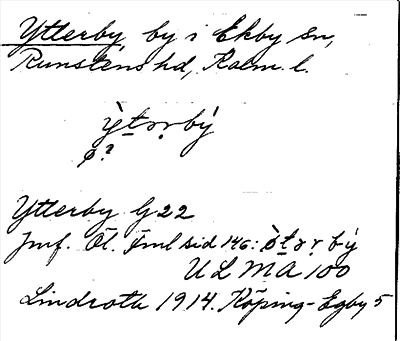 Ytterby, by i Ekby sn,
Runstens hd, Kalm. l.
ỳtərbý
ø?
Ytterby G22
Jmf. Öl. Fml sid 146: ø̀tərbý
ULMA 100
Lindroth 1914. Köping-Egby 5